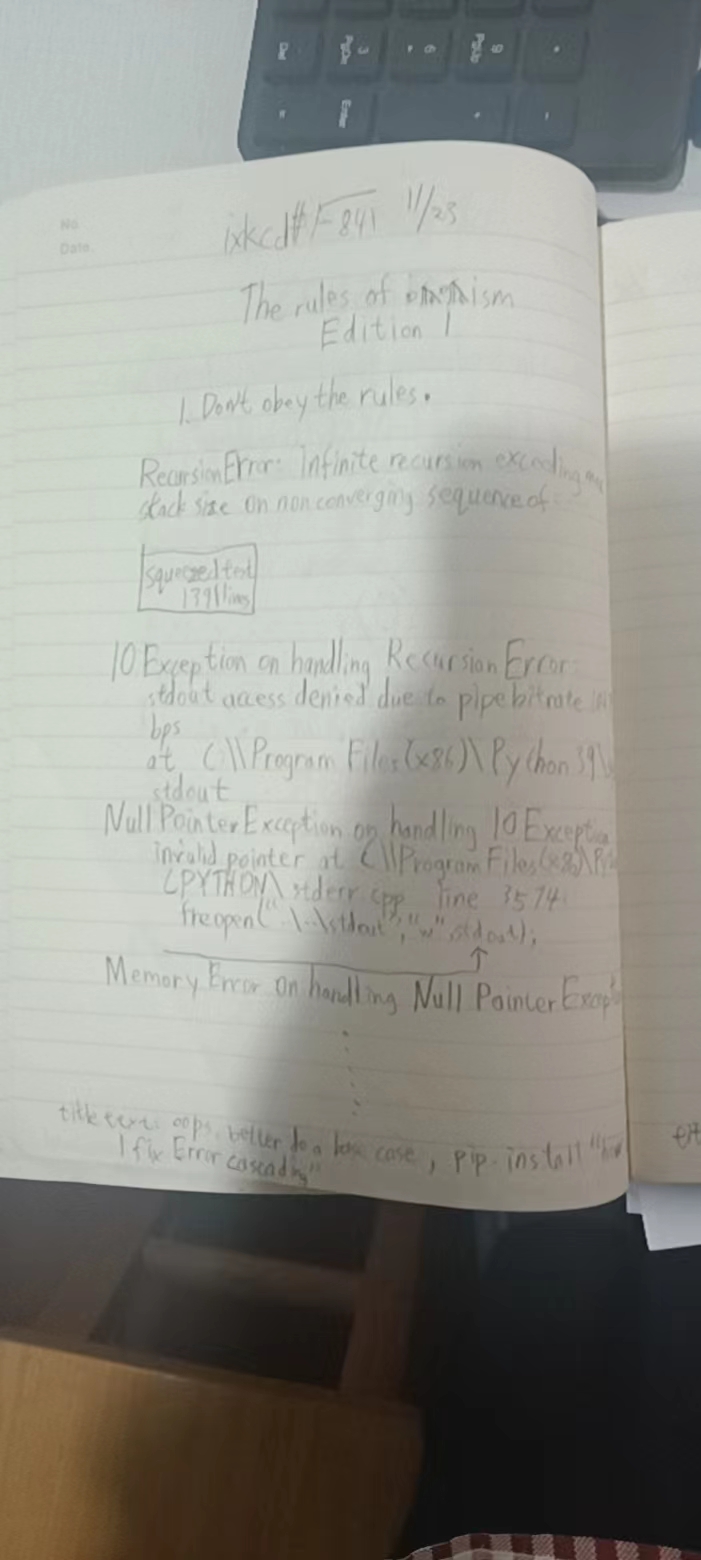 No.
Date.
ixkcd# √-841 11/23
The rules of ism
Edition 1
1. Don't obey the rules.
RecursionError: Infinite recursion excceding
stack size on non converging sequence of:
squeezed text
1391 lines
IO Exception on handling Recursion Error:
stdout access denied due to pipe bitrate
bps
at C:\\Program Files (x86)\Python 39\
stdout
Null Pointer Exception on handling IO Exception
invalid pointer at C:\\Program Files (x86)\
CPYTHON\stderr.cpp line 3574:
freopen("..\..\stdout","w",stdout);
↑
Memory Error on handling Null Pointer
title text: oops, better do a base case, pip install "how
I fix Error cascading"